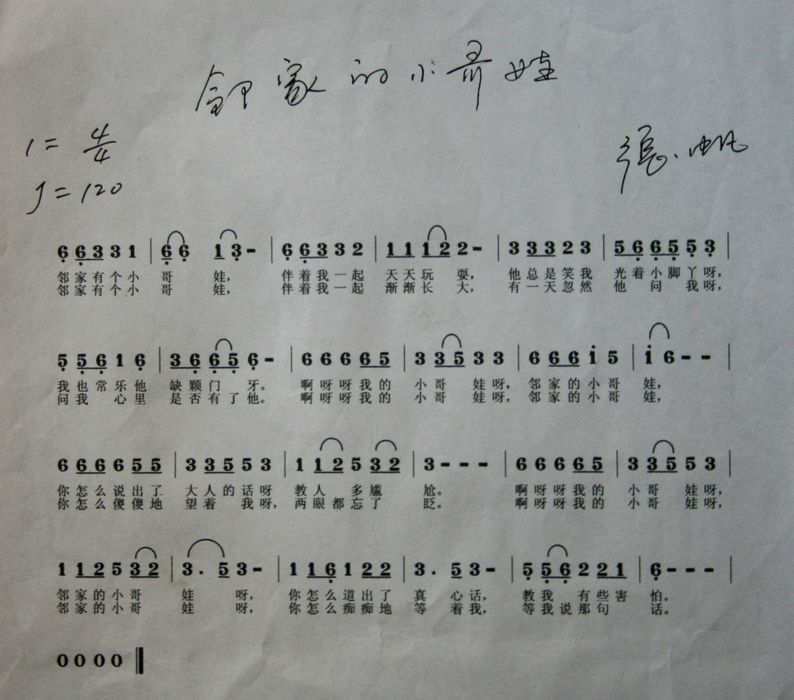 邻家的小哥娃
1= 4/4
张.帆
J=120
6 6 3 3 1 | 6 6 1 3 - | 6 6 3 3 2 | 1 1 1 2 2 - | 3 3 3 2 3 | 5 6 6 5 5 3 |
邻家有个小 哥 娃, 伴着我一起 天天玩 耍, 他总是笑我 光着小脚丫呀,
邻家有个小 哥 娃, 伴着我一起 渐渐长 大, 有一天忽然 他 问 我呀,
5 5 6 1 6 | 3 6 6 5 6 - | 6 6 6 6 5 | 3 3 5 3 3 | 6 6 6 i 5 | i 6 - - |
我也常乐他 缺颗门 牙。 啊呀呀我的 小哥 娃呀, 邻家的小哥 娃,
问我 心里 是否有了他。 啊呀呀我的 小哥 娃呀, 邻家的小哥 娃,
6 6 6 6 5 5 | 3 3 5 5 3 | 1 1 2 5 3 2 | 3 - - - | 6 6 6 6 5 | 3 3 5 5 3 |
你怎么说出了 大人的话呀 教人 多尴 尬。 啊呀呀我的 小哥 娃呀,
你怎么傻傻地 望着 我呀, 两眼都忘了 眨。 啊呀呀我的 小哥 娃呀,
1 1 2 5 3 2 | 3 . 5 3 - | 1 1 6 1 2 2 | 3 . 5 3 - | 5 5 6 2 2 1 | 6 - - - |
邻家的小哥 娃 呀, 你怎么道出了 真 心话, 教我 有些害 怕。
邻家的小哥 娃 呀, 你怎么痴痴地 等 着我, 等我说那句 话。
0 0 0 0